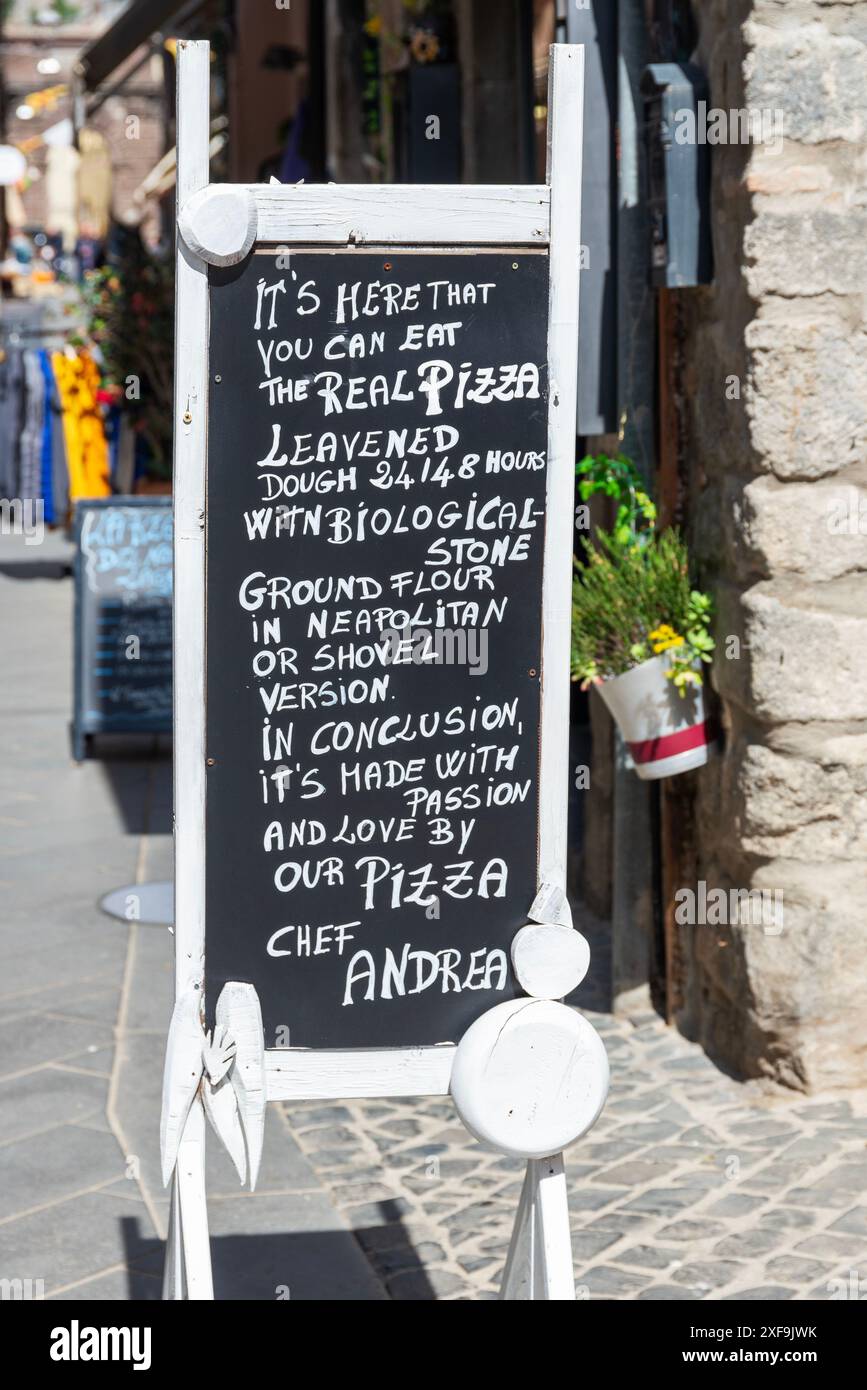 IT'S HERE THAT
YOU CAN EAT
THE REAL PIZZA
LEAVENED
DOUGH 24/48 HOURS
WITH BIOLOGICAL-
STONE
GROUND FLOUR
IN NEAPOLITAN
OR SHOVEL
VERSION.
IN CONCLUSION,
IT'S MADE WITH
PASSION
AND LOVE BY
OUR PIZZA
CHEF
ANDREA
a
alamy
alamy
Image ID: 2XF9JWK
www.alamy.com